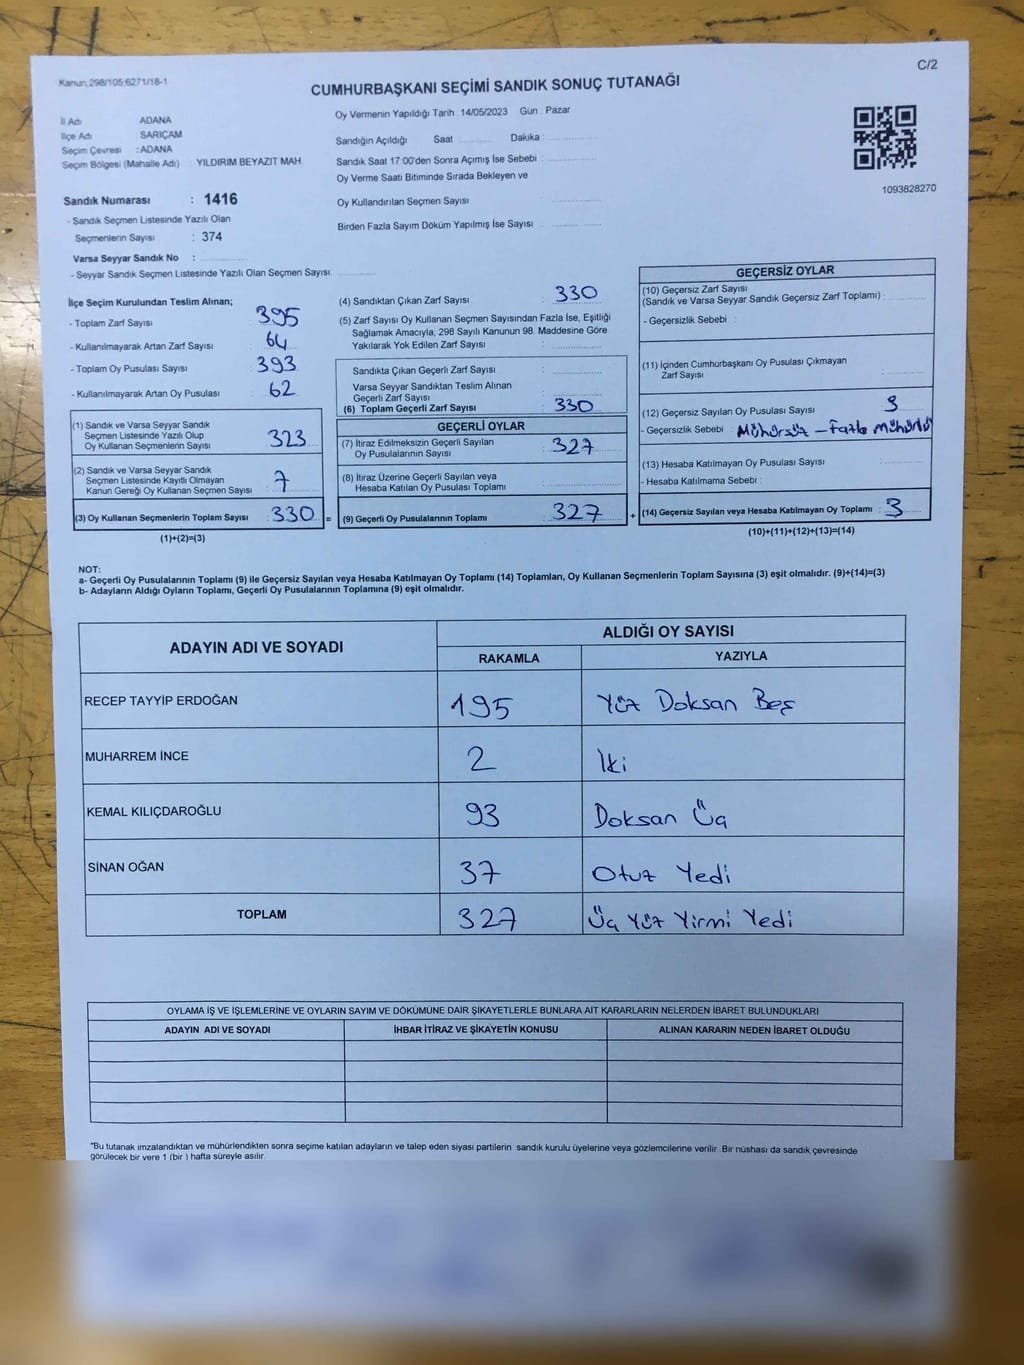 C/2
Kanun:298/105;6271/18-1
CUMHURBAŞKANI SEÇİMİ SANDIK SONUÇ TUTANAĞI
Oy Vermenin Yapıldığı Tarih : 14/05/2023 Gün : Pazar
İl Adı : ADANA
İlçe Adı : SARIÇAM
Seçim Çevresi : ADANA
Seçim Bölgesi (Mahalle Adı) : YILDIRIM BEYAZIT MAH.
Sandık Numarası : 1416
- Sandık Seçmen Listesinde Yazılı Olan
Seçmenlerin Sayısı : 374
Varsa Seyyar Sandık No :
- Seyyar Sandık Seçmen Listesinde Yazılı Olan Seçmen Sayısı:
Sandığın Açıldığı Saat Dakika :
Sandık Saat 17:00'den Sonra Açımış İse Sebebi :
Oy Verme Saati Bitiminde Sırada Bekleyen ve
Oy Kullandırılan Seçmen Sayısı
Birden Fazla Sayım Döküm Yapılmış İse Sayısı
1093828270
İlçe Seçim Kurulundan Teslim Alınan;
- Toplam Zarf Sayısı : 395
- Kullanılmayarak Artan Zarf Sayısı : 64
- Toplam Oy Pusulası Sayısı : 393
- Kullanılmayarak Artan Oy Pusulası : 62
(1) Sandık ve Varsa Seyyar Sandık
Seçmen Listesinde Yazılı Olup
Oy Kullanan Seçmenlerin Sayısı : 323
(2) Sandık ve Varsa Seyyar Sandık
Seçmen Listesinde Kayıtlı Olmayan
Kanun Gereği Oy Kullanan Seçmen Sayısı : 7
(3) Oy Kullanan Seçmenlerin Toplam Sayısı : 330 =
(1)+(2)=(3)
(4) Sandıktan Çıkan Zarf Sayısı : 330
(5) Zarf Sayısı Oy Kullanan Seçmen Sayısından Fazla İse, Eşitliği
Sağlamak Amacıyla, 298 Sayılı Kanunun 98. Maddesine Göre
Yakılarak Yok Edilen Zarf Sayısı :
Sandıkta Çıkan Geçerli Zarf Sayısı :
Varsa Seyyar Sandıktan Teslim Alınan
Geçerli Zarf Sayısı :
(6) Toplam Geçerli Zarf Sayısı : 330
GEÇERLİ OYLAR
(7) İtiraz Edilmeksizin Geçerli Sayılan
Oy Pusulalarının Sayısı : 327
(8) İtiraz Üzerine Geçerli Sayılan veya
Hesaba Katılan Oy Pusulası Toplamı :
(9) Geçerli Oy Pusulalarının Toplamı : 327 +
GEÇERSİZ OYLAR
(10) Geçersiz Zarf Sayısı
(Sandık ve Varsa Seyyar Sandık Geçersiz Zarf Toplamı) :
- Geçersizlik Sebebi :
(11) İçinden Cumhurbaşkanı Oy Pusulası Çıkmayan
Zarf Sayısı :
(12) Geçersiz Sayılan Oy Pusulası Sayısı : 3
- Geçersizlik Sebebi : Mühürsüz - Fazla mühürlü
(13) Hesaba Katılmayan Oy Pusulası Sayısı :
- Hesaba Katılmama Sebebi :
(14) Geçersiz Sayılan veya Hesaba Katılmayan Oy Toplamı : 3
(10)+(11)+(12)+(13)=(14)
NOT:
a- Geçerli Oy Pusulalarının Toplamı (9) ile Geçersiz Sayılan veya Hesaba Katılmayan Oy Toplamı (14) Toplamları, Oy Kullanan Seçmenlerin Toplam Sayısına (3) eşit olmalıdır. (9)+(14)=(3)
b- Adayların Aldığı Oyların Toplamı, Geçerli Oy Pusulalarının Toplamına (9) eşit olmalıdır.
ADAYIN ADI VE SOYADI ALDIĞI OY SAYISI
RAKAMLA YAZIYLA
RECEP TAYYİP ERDOĞAN 195 Yüz Doksan Beş
MUHARREM İNCE 2 İki
KEMAL KILIÇDAROĞLU 93 Doksan Üç
SİNAN OĞAN 37 Otuz Yedi
TOPLAM 327 Üç Yüz Yirmi Yedi
OYLAMA İŞ VE İŞLEMLERİNE VE OYLARIN SAYIM VE DÖKÜMÜNE DAİR ŞİKAYETLERLE BUNLARA AİT KARARLARIN NELERDEN İBARET BULUNDUKLARI
ADAYIN ADI VE SOYADI İHBAR İTİRAZ VE ŞİKAYETİN KONUSU ALINAN KARARIN NEDEN İBARET OLDUĞU
*Bu tutanak imzalandıktan ve mühürlendikten sonra seçime katılan adayların ve talep eden siyasi partilerin sandık kurulu üyelerine veya gözlemcilerine verilir. Bir nüshası da sandık çevresinde
görülecek bir yere 1 (bir ) hafta süreyle asılır.